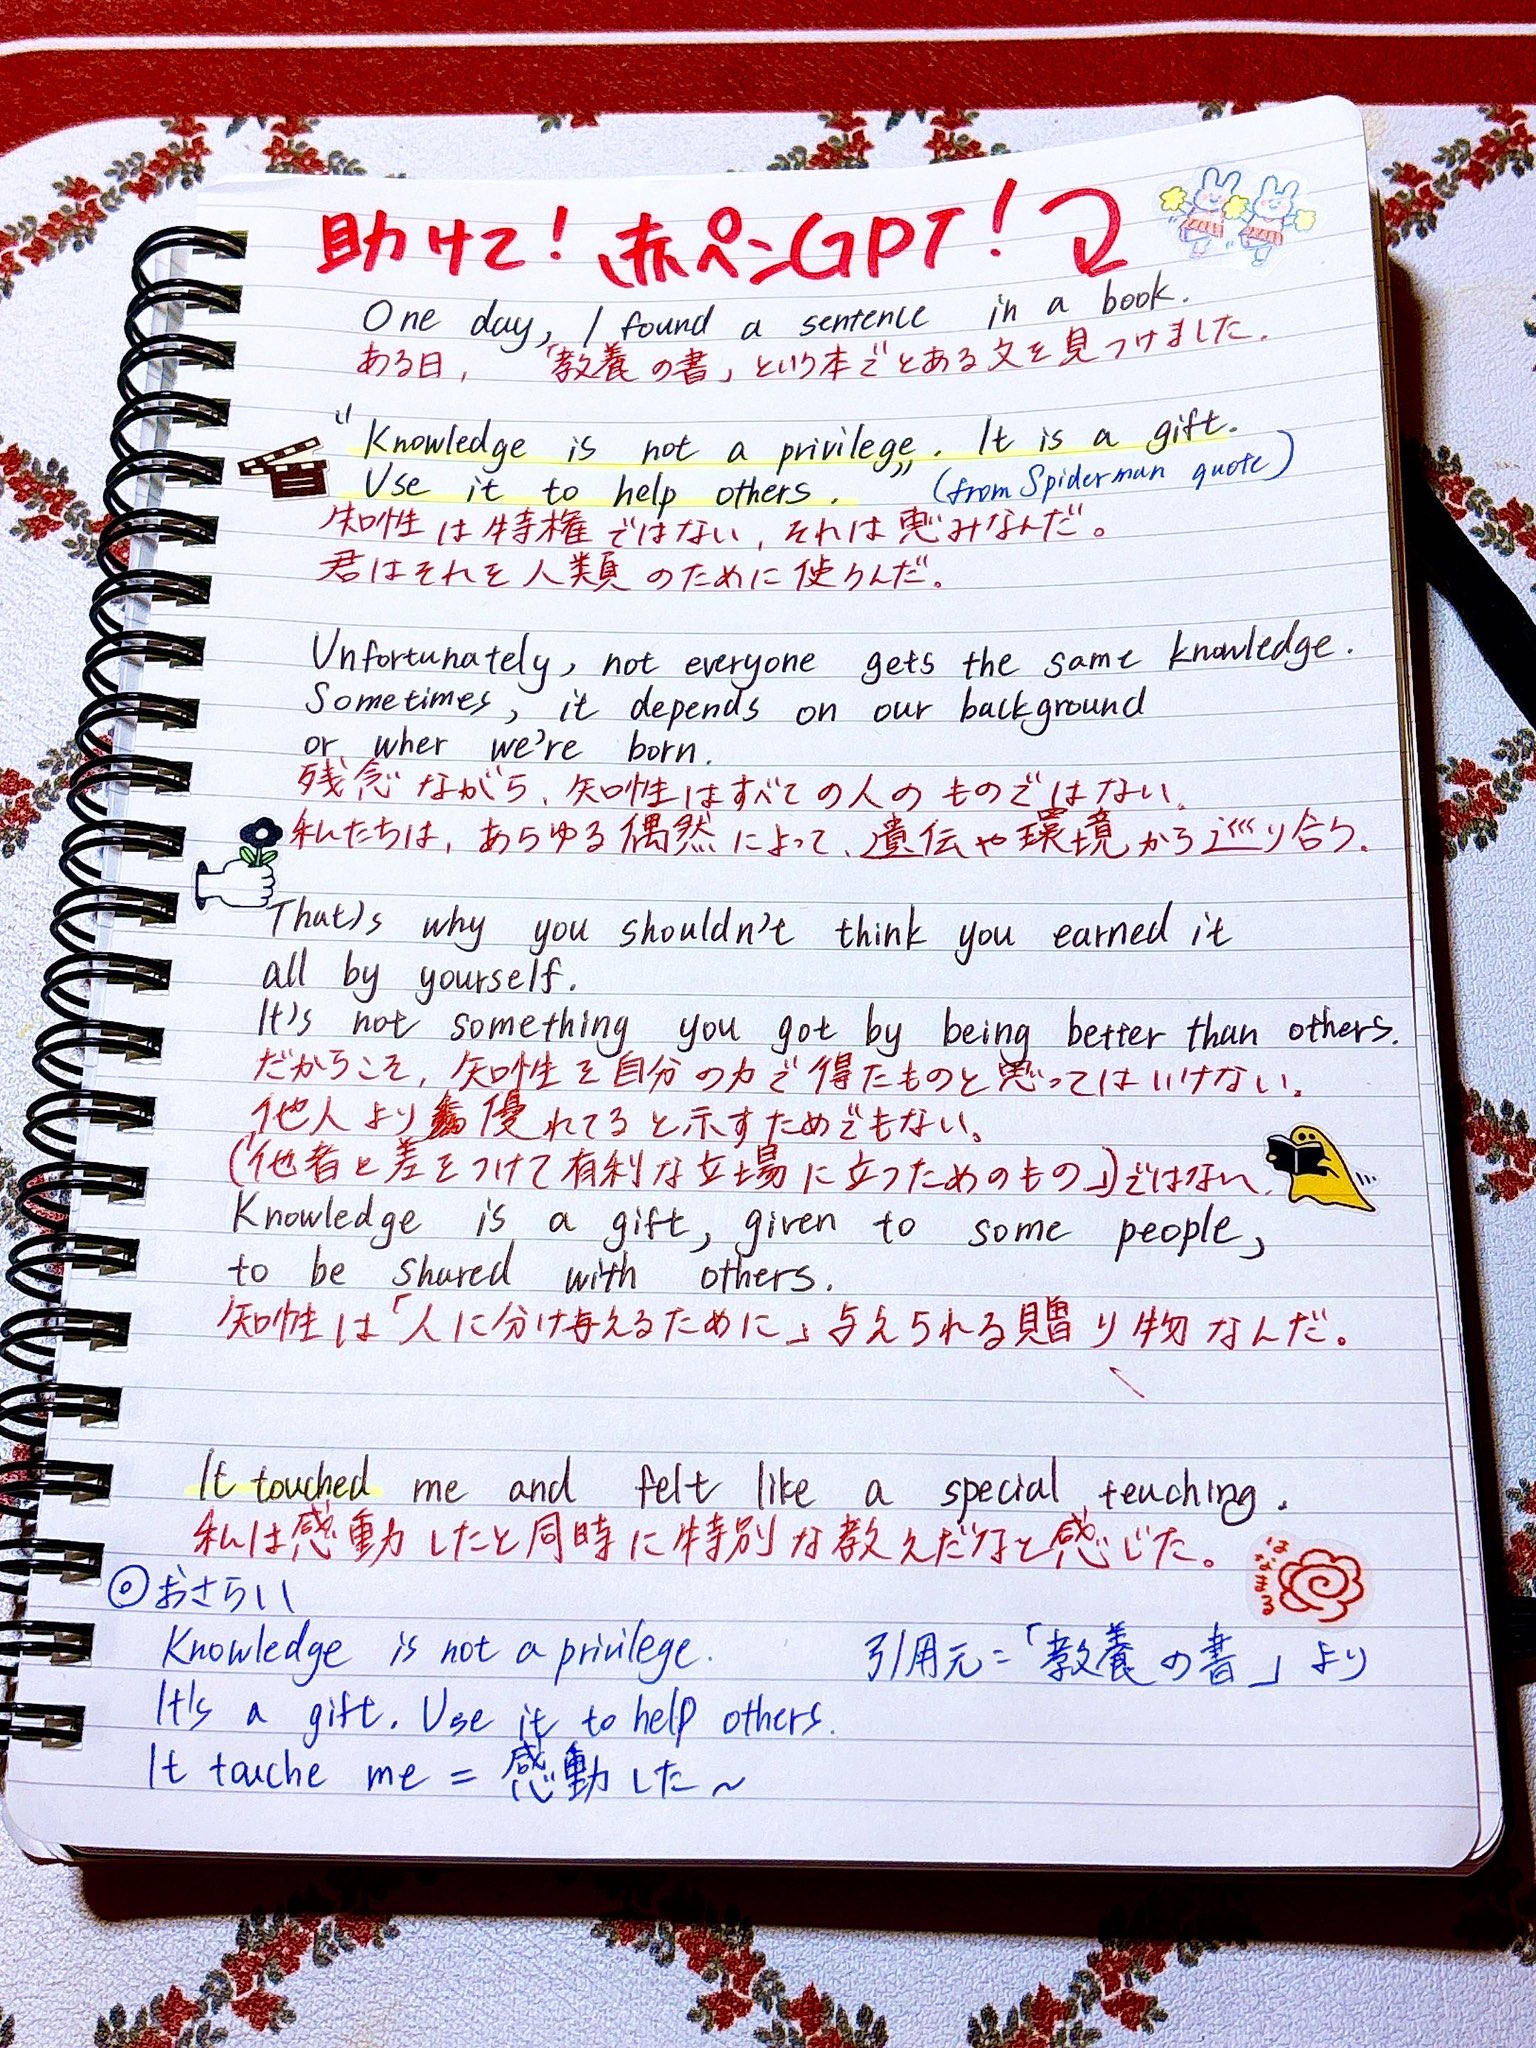 助けて！赤ペンGPT！
One day, I found a sentence in a book.
ある日、「教養の書」という本でとある文を見つけました。
"Knowledge is not a privilege. It is a gift.
Use it to help others." (from Spiderman quote)
知性は特権ではない、それは恵みなんだ。
君はそれを人類のために使うんだ。
Unfortunately, not everyone gets the same knowledge.
Sometimes, it depends on our background
or wher we're born.
残念ながら、知性はすべての人のものではない、
私たちは、あらゆる偶然によって、遺伝や環境から巡り合う、
That's why you shouldn't think you earned it
all by yourself.
It's not something you got by being better than others.
だからこそ、知性を自分の力で得たものと思ってはいけない、
他人より優れてると示すためでもない。
(「他者と差をつけて有利な立場に立つためのもの」)ではない、
Knowledge is a gift, given to some people,
to be shared with others.
知性は「人に分け与えるために」与えられる贈り物なんだ。
It touched me and felt like a special teaching.
私は感動したと同時に特別な教えだなと感じた。
はなまる
◎おさらい
Knowledge is not a privilege.
引用元=「教養の書」より
It's a gift. Use it to help others.
It touche me = 感動した~